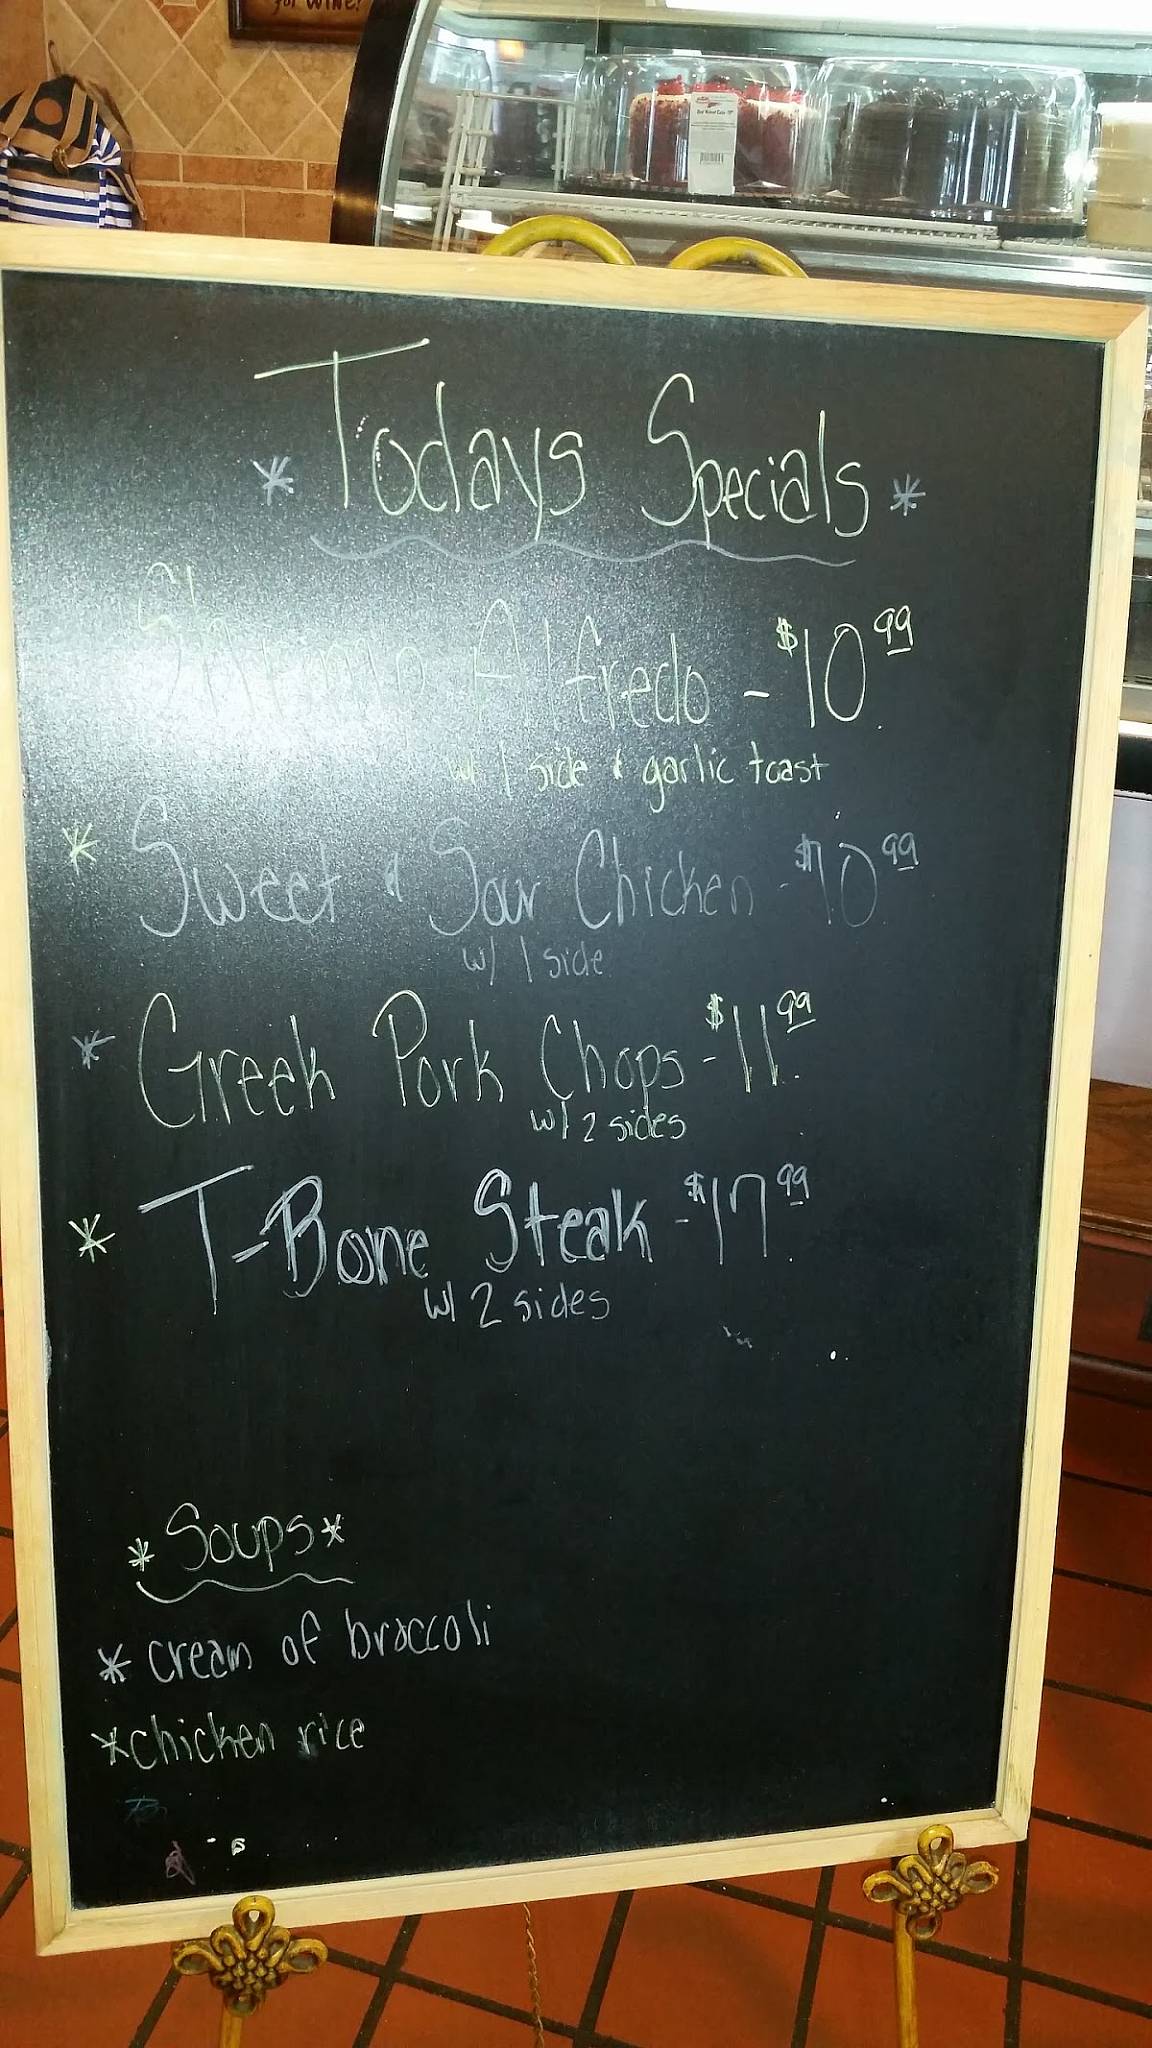 for WINE!
Red Velvet Cake 10"
* Todays Specials *
Shrimp Alfredo - $10.99
w/ 1 side & garlic toast
* Sweet & Sour Chicken - $10.99
w/ 1 side
* Greek Pork Chops - $11.99
w/ 2 sides
* T-Bone Steak - $17.99
w/ 2 sides
* Soups *
* cream of broccoli
* chicken rice